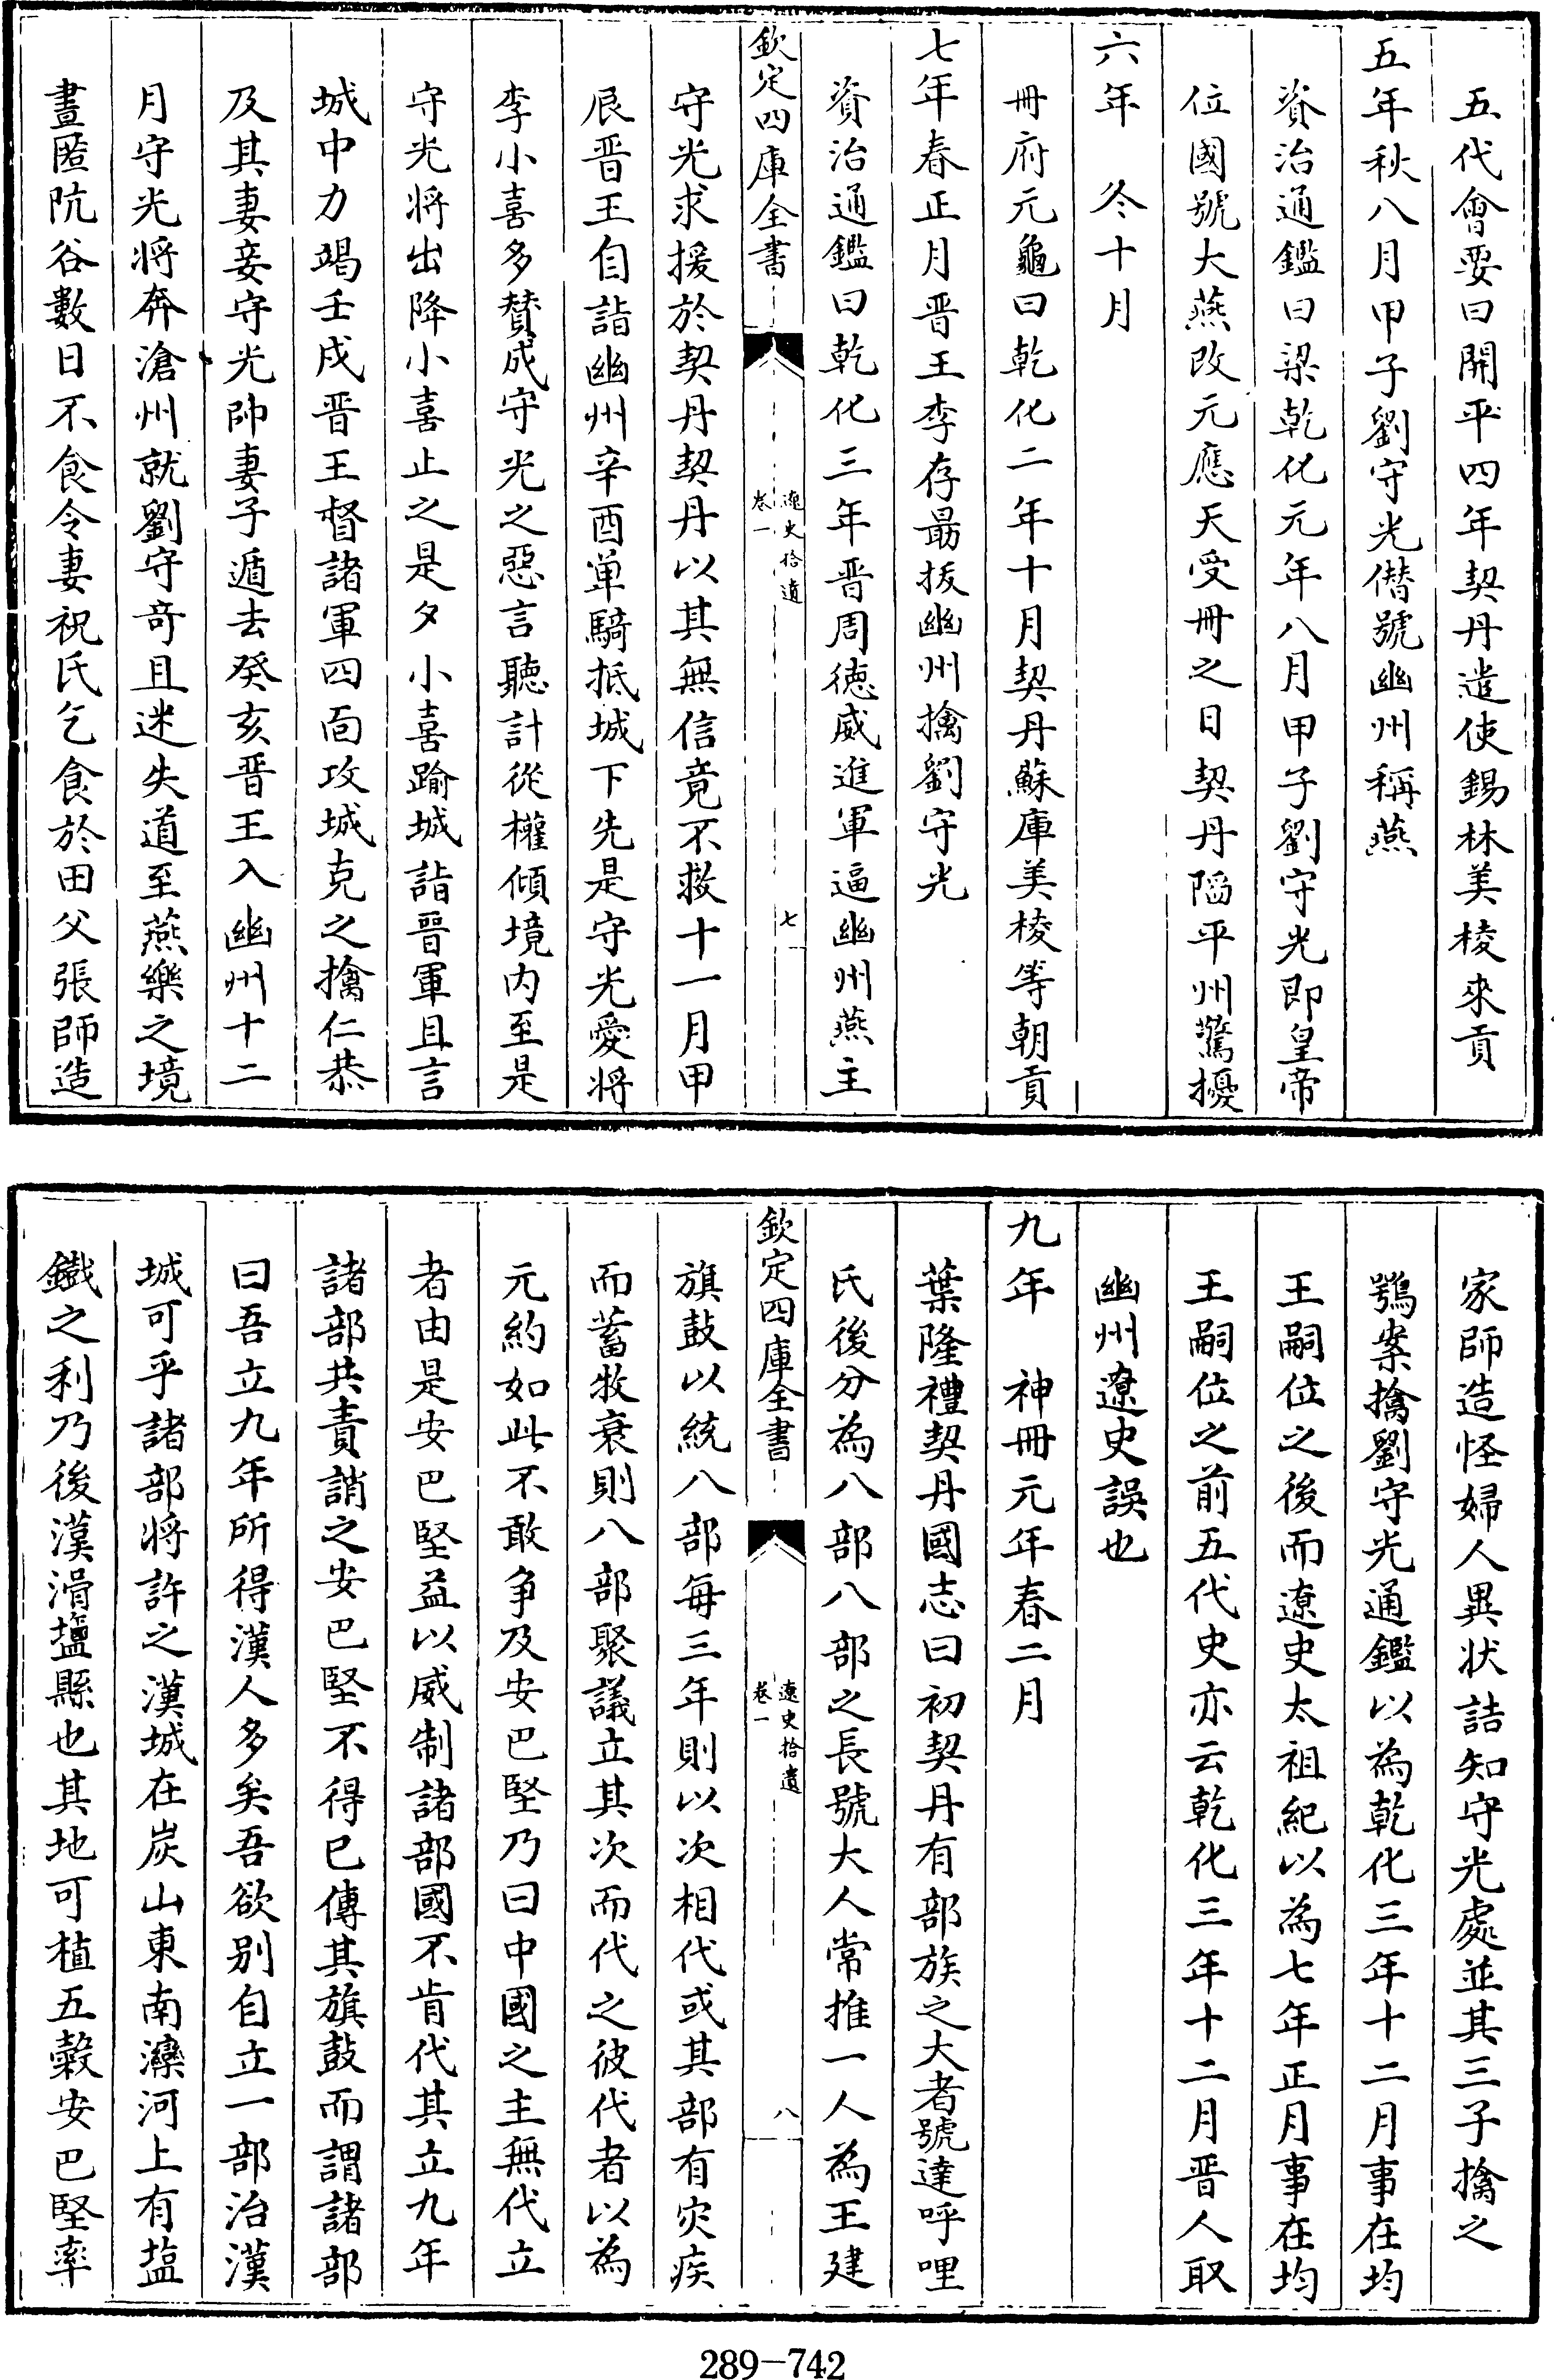 五代會要曰開平四年契丹遣使錫林美棱來貢
五年秋八月甲子劉守光僭號幽州稱燕
資治通鑑曰梁乾化元年八月甲子劉守光即皇帝
位國號大燕改元應天受冊之日契丹陷平州驚擾
六年 冬十月
冊府元龜曰乾化二年十月契丹蘇庫美棱等朝貢
七年春正月晋王李存勗拔幽州擒劉守光
資治通鑑曰乾化三年晋周徳威進軍逼幽州燕主
欽定四庫全書
遼史拾遺
卷一
七
守光求援於契丹契丹以其無信竟不救十一月甲
辰晋王自詣幽州辛酉单騎抵城下先是守光愛将
李小喜多賛成守光之惡言聽計從權傾境内至是
守光将出降小喜止之是夕小喜踰城詣晉軍且言
城中力竭壬戌晋王督諸軍四面攻城克之擒仁恭
及其妻妾守光帥妻子遁去癸亥晋王入幽州十二
月守光将奔滄州就劉守竒且迷失道至燕樂之境
晝匿阬谷數日不食令妻祝氏乞食於田父張師造
家師造怪婦人異状詰知守光處並其三子擒之
鶚案擒劉守光通鑑以為乾化三年十二月事在均
王嗣位之後而遼史太祖紀以為七年正月事在均
王嗣位之前五代史亦云乾化三年十二月晋人取
幽州遼史誤也
九年 神冊元年春二月
葉隆禮契丹國志曰初契丹有部族之大者號達呼哩
氏後分為八部八部之長號大人常推一人為王建
欽定四庫全書
遼史拾遺
卷一
八
旗鼓以統八部每三年則以次相代或其部有灾疾
而蓄牧衰則八部聚議立其次而代之彼代者以為
元約如此不敢争及安巴堅乃曰中國之主無代立
者由是安巴堅益以威制諸部國不肯代其立九年
諸部共責誚之安巴堅不得已傳其旗鼓而謂諸部
曰吾立九年所得漢人多矣吾欲别自立一部治漢
城可乎諸部将許之漢城在炭山東南灤河上有塩
鐵之利乃後漢滑塩縣也其地可植五穀安巴堅率
289-742